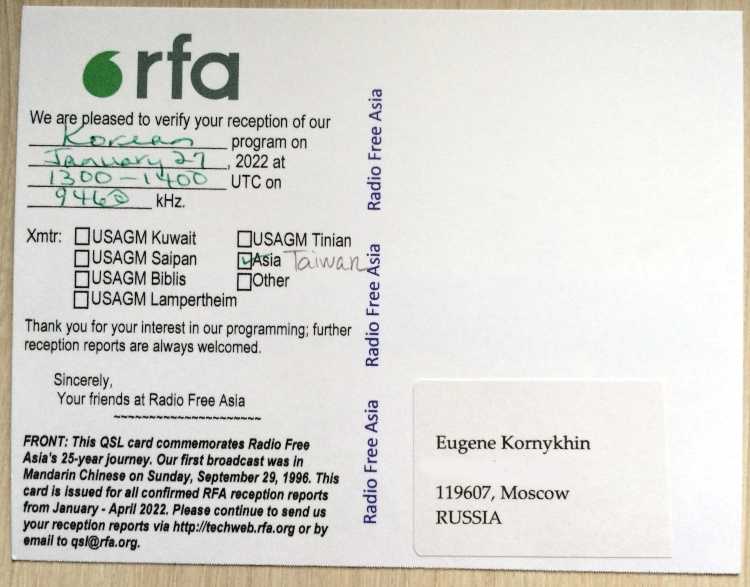 rfa
We are pleased to verify your reception of our
Korean program on
January 27, 2022 at
1300-1400 UTC on
9460 kHz.
Xmtr: USAGM Kuwait USAGM Tinian
USAGM Saipan Asia Taiwan
USAGM Biblis Other
USAGM Lampertheim
Thank you for your interest in our programming; further
reception reports are always welcomed.
Sincerely,
Your friends at Radio Free Asia
~~~~~~~~~~~~~~~~~~~~~
FRONT: This QSL card commemorates Radio Free
Asia's 25-year journey. Our first broadcast was in
Mandarin Chinese on Sunday, September 29, 1996. This
card is issued for all confirmed RFA reception reports
from January - April 2022. Please continue to send us
your reception reports via http://techweb.rfa.org or by
email to qsl@rfa.org.
Radio Free Asia
Radio Free Asia
Radio Free Asia
Eugene Kornykhin
119607, Moscow
RUSSIA